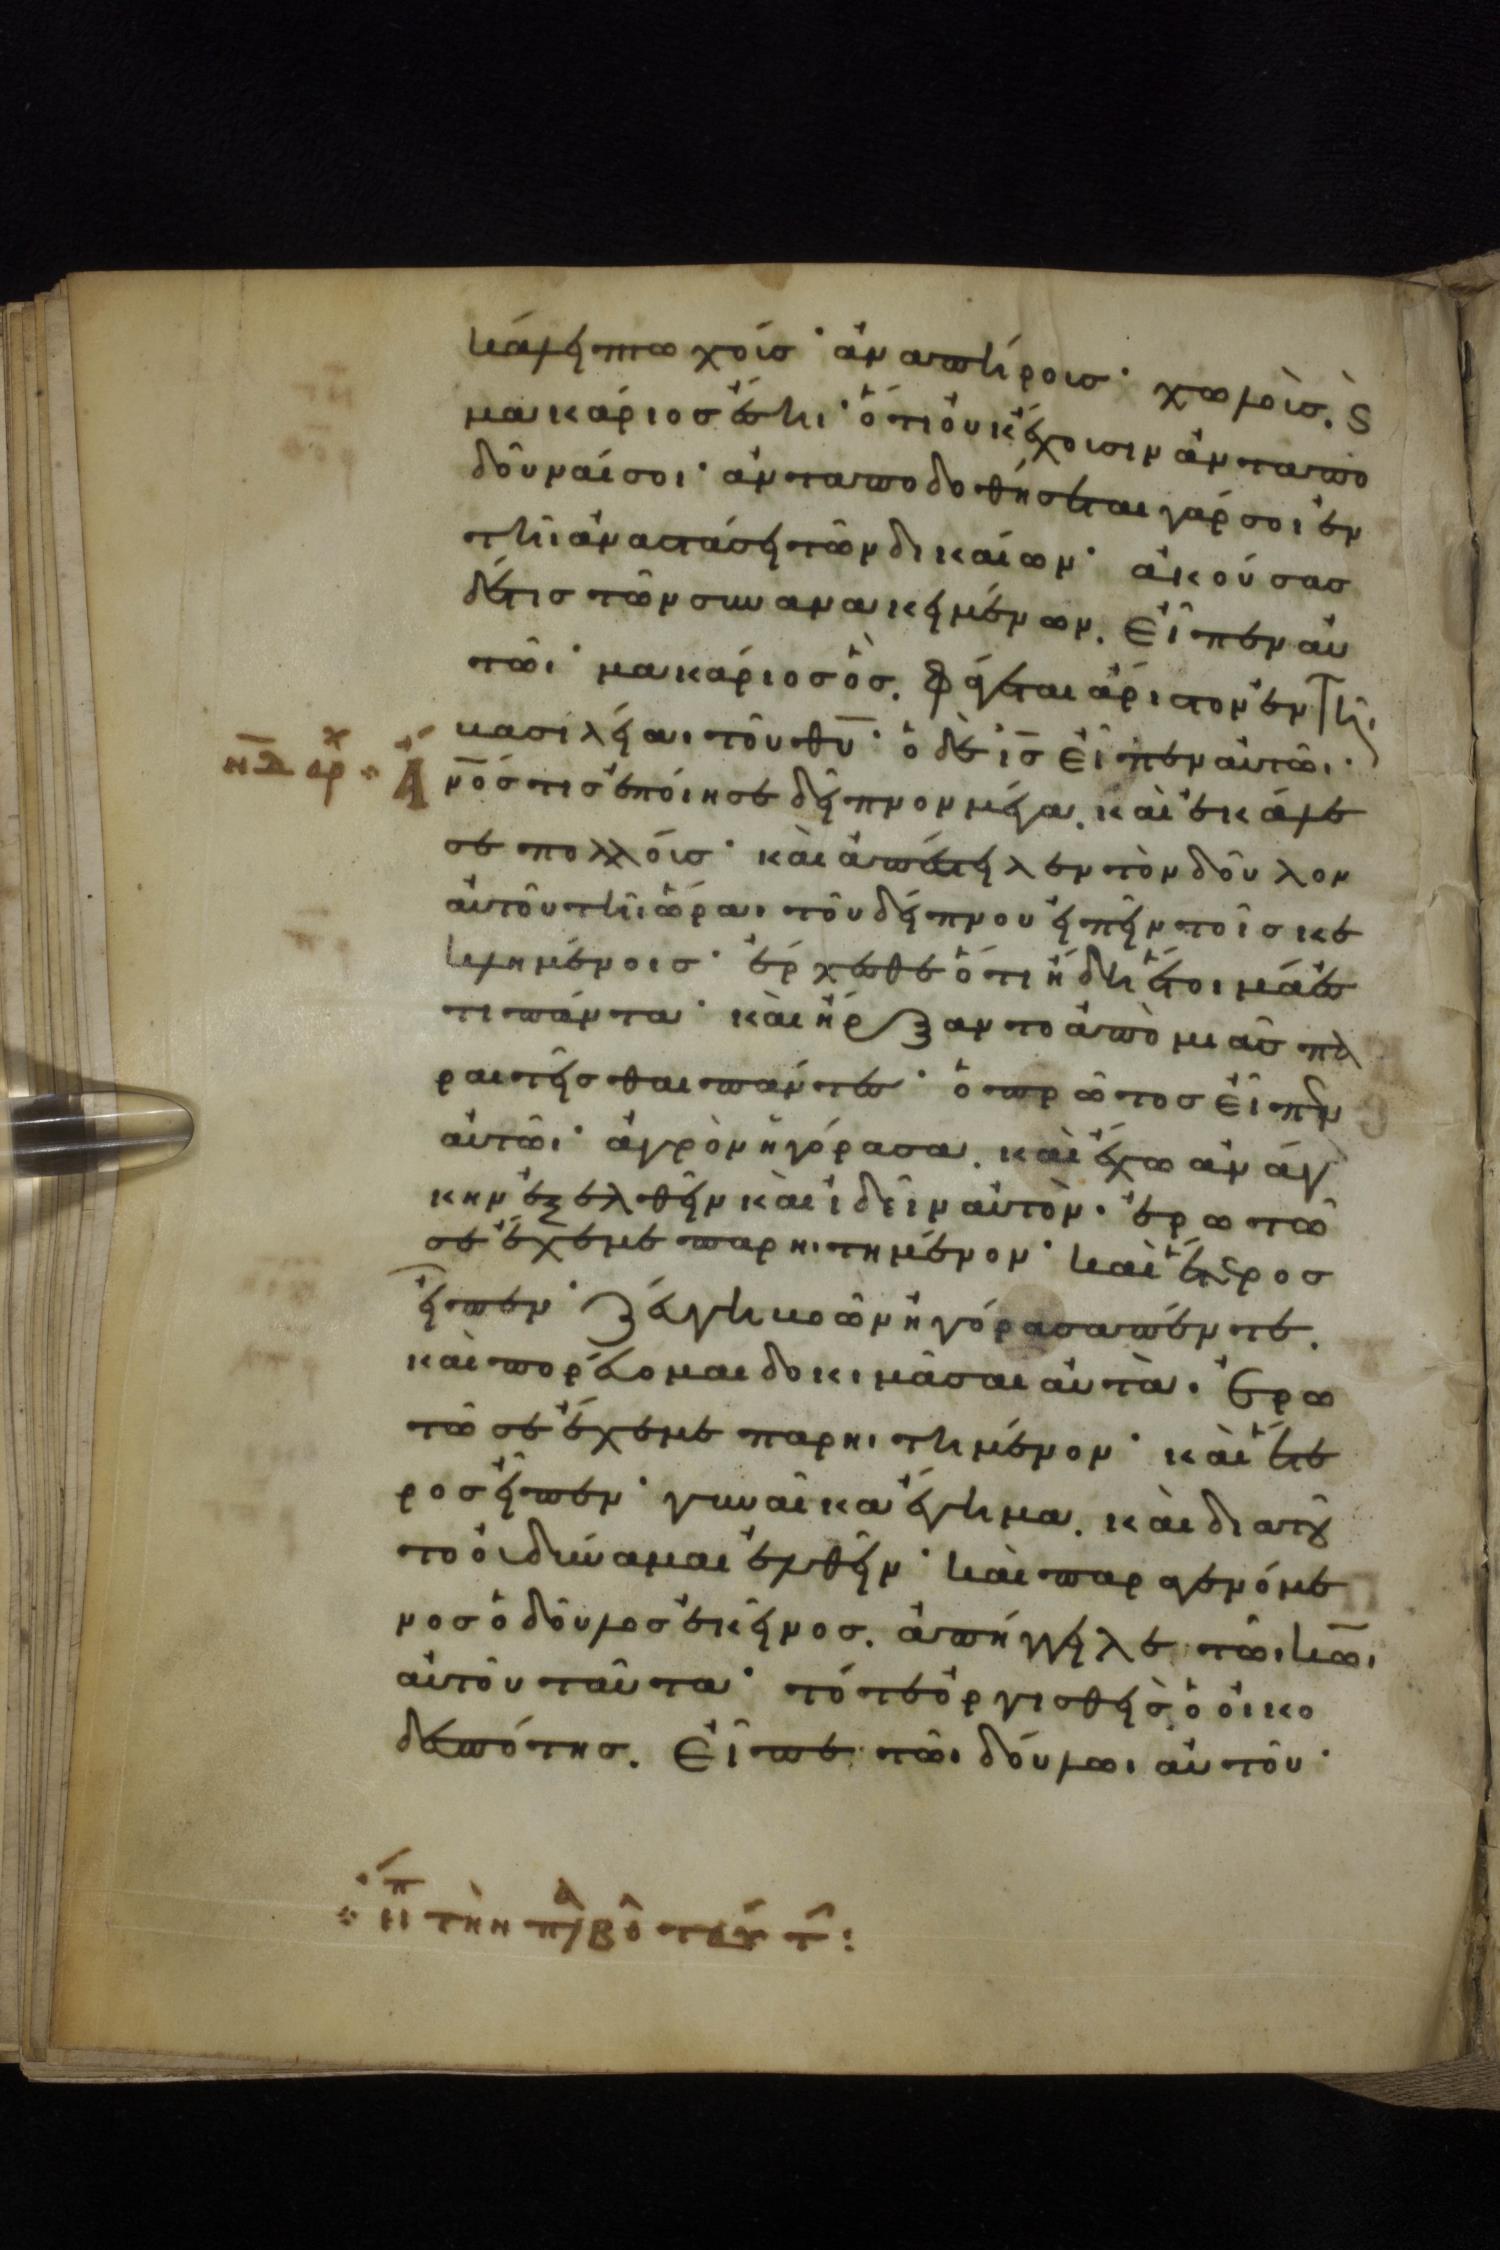 κάλει πτωχοὺσ· ἀναπήροισ· χωλοὺσ. ϛ
μακάριοσ ἔση· ὅτι οὐκ ἔχουσιν ἀνταπο
δοῦναί σοι· ἀνταποδοθήσεται γάρ σοι ἐν
τῆι ἀναστάσει τῶν δικαίων· ἀκούσασ
δέ τισ τῶν συνανακειμένων. εἶπεν αὐ
τῶι· μακάριοσ ὃσ. φάγεται ἄριστον ἐν τῆι
βασιλείαι τοῦ θυ· ὁ δὲ ισ εἶπεν αὐτῶι·
Ἀνόσ τισ ἐποίησε δεῖπνον μέγα. καὶ ἐκάλε
σε πολλούσ· καὶ ἀπέστειλεν τὸν δοῦλον
αὐτοῦ τῆι ὥραι τοῦ δείπνου εἰπεῖν τοῖσ κε
κλημένοισ· ἔρχεσθε ὅτι ἤδη ἕτοιμά ἐσ
τι πάντα· καὶ ἤρξαντο ἀπὸ μιᾶσ πα
ραιτεῖσθαι πάντεσ· ὁ πρῶτοσ εἶπεν
αὐτῶι· ἀγρὸν ἠγόρασα. καὶ ἔχω ἀνάγ
κην ἐξελθεῖν καὶ ἰδεῖν αὐτόν. ἐρωτῶ
σε ἔχε με παρηιτημένον· καὶ ἕτεροσ
εἶπεν· ζεύγη βοῶν ἠγόρασα πέντε.
καὶ πορεύομαι δοκιμᾶσαι αὐτά. ἐρω
τῶ σε ἔχε με παρηιτημένον· καὶ ἕτε
ροσ εἶπεν· γυναῖκα ἔγημα. καὶ διὰ τοῦ
το οὐ δύναμαι ἐλθεῖν· καὶ παραγενόμε
νοσ ὁ δοῦλοσ ἐκεῖνοσ. ἀπήγγειλε τῶι κωι
αὐτοῦ ταῦτα· τότε ὀργισθεὶσ ὁ οἰκο
δεσπότησ. εἶπε τῶι δούλωι αὐτοῦ·